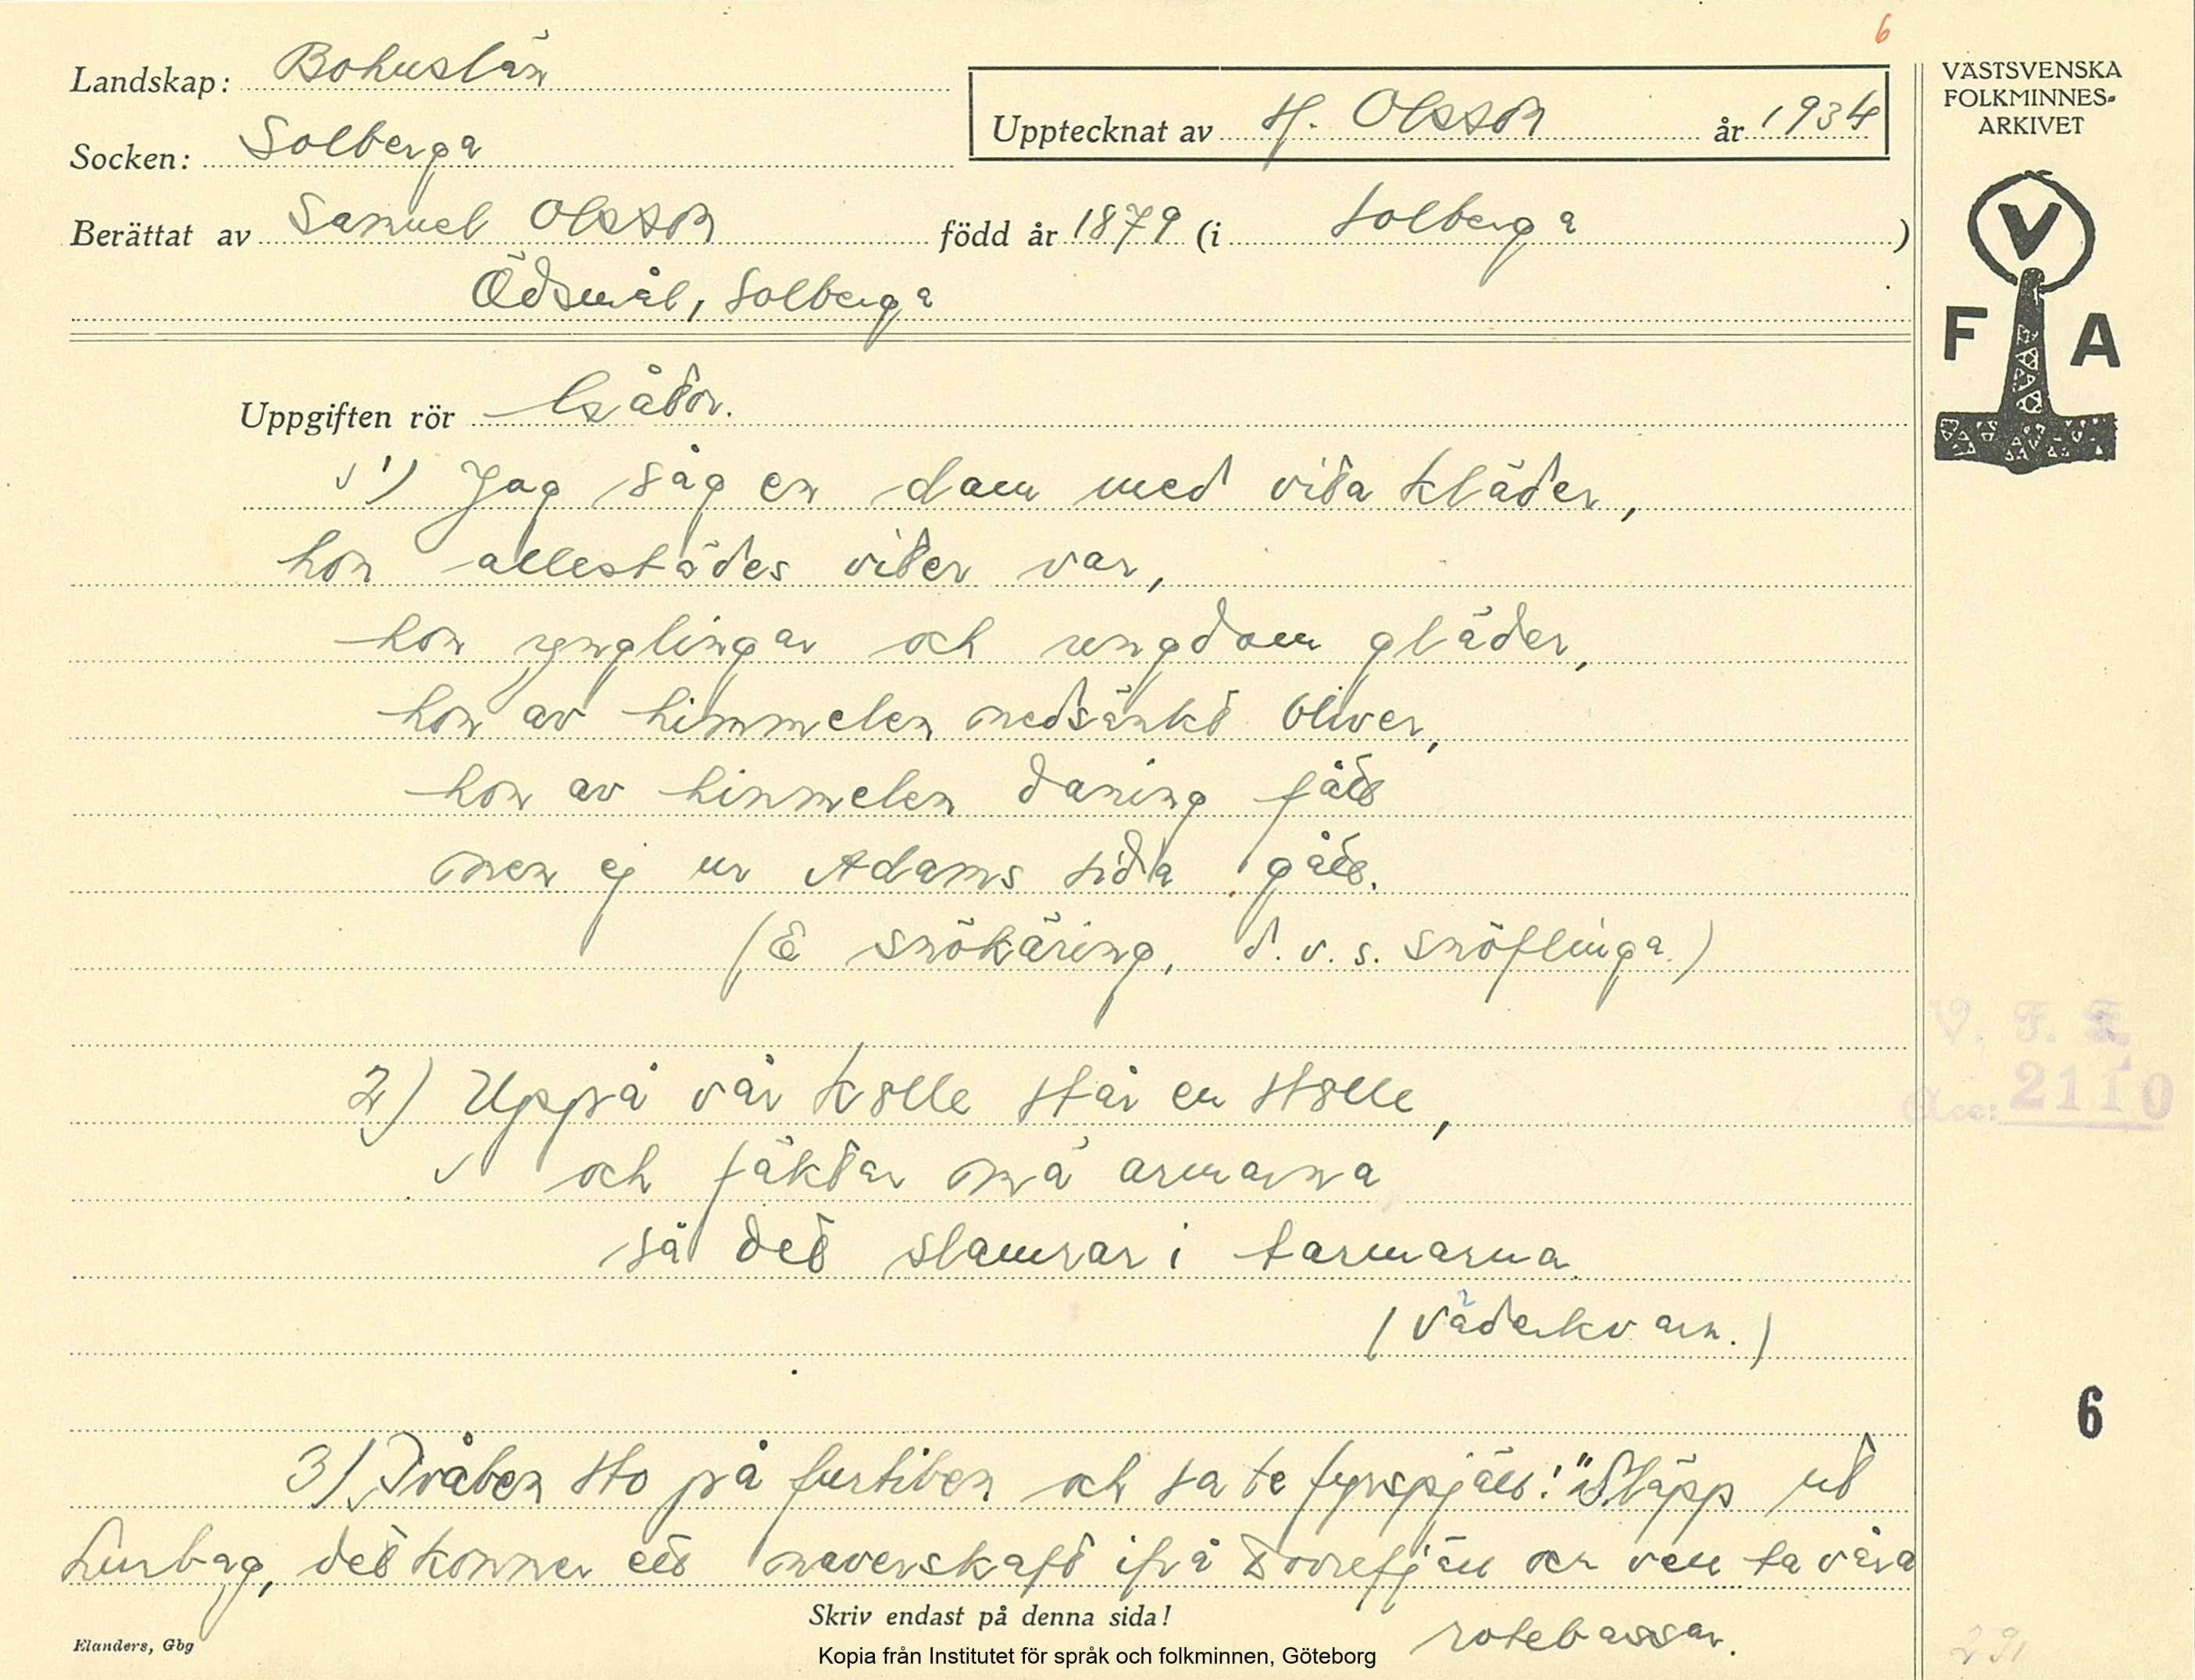 6
Landskap: Bohuslän
Socken: Solberga
Upptecknat av H. Olsson år 1934
VÄSTSVENSKA
FOLKMINNES-
ARKIVET
Berättat av Samuel Olsson född år 1879 (i Solberga)
Ödsmål, Solberga
V
F A
Uppgiften rör Gåtor.
1) Jag såg en dam med vita kläder,
hon allestädes viter var,
hon ynglingar och ungdom gläder,
hon av himmelen nedsänkt bliver,
hon av himmelen daning fått
men ej ur Adams sida gått.
(E snökäring, d.v.s. snöflinga.)
2) Uppå vår kolle står en stolle,
och fäktar mä armarna
så det slamrar i tarmarna.
(Väderkvarn.)
V. F.
Acc: 2110
6
3) Tvåten sto på furtiten och sa te fyrspjält: "Släpp ut
lurbag, det kommer ett naverskaft ifrå Dovrefjäll och vell ta våra
rotebassar.
Skriv endast på denna sida!
Elanders, Gbg
Kopia från Institutet för språk och folkminnen, Göteborg